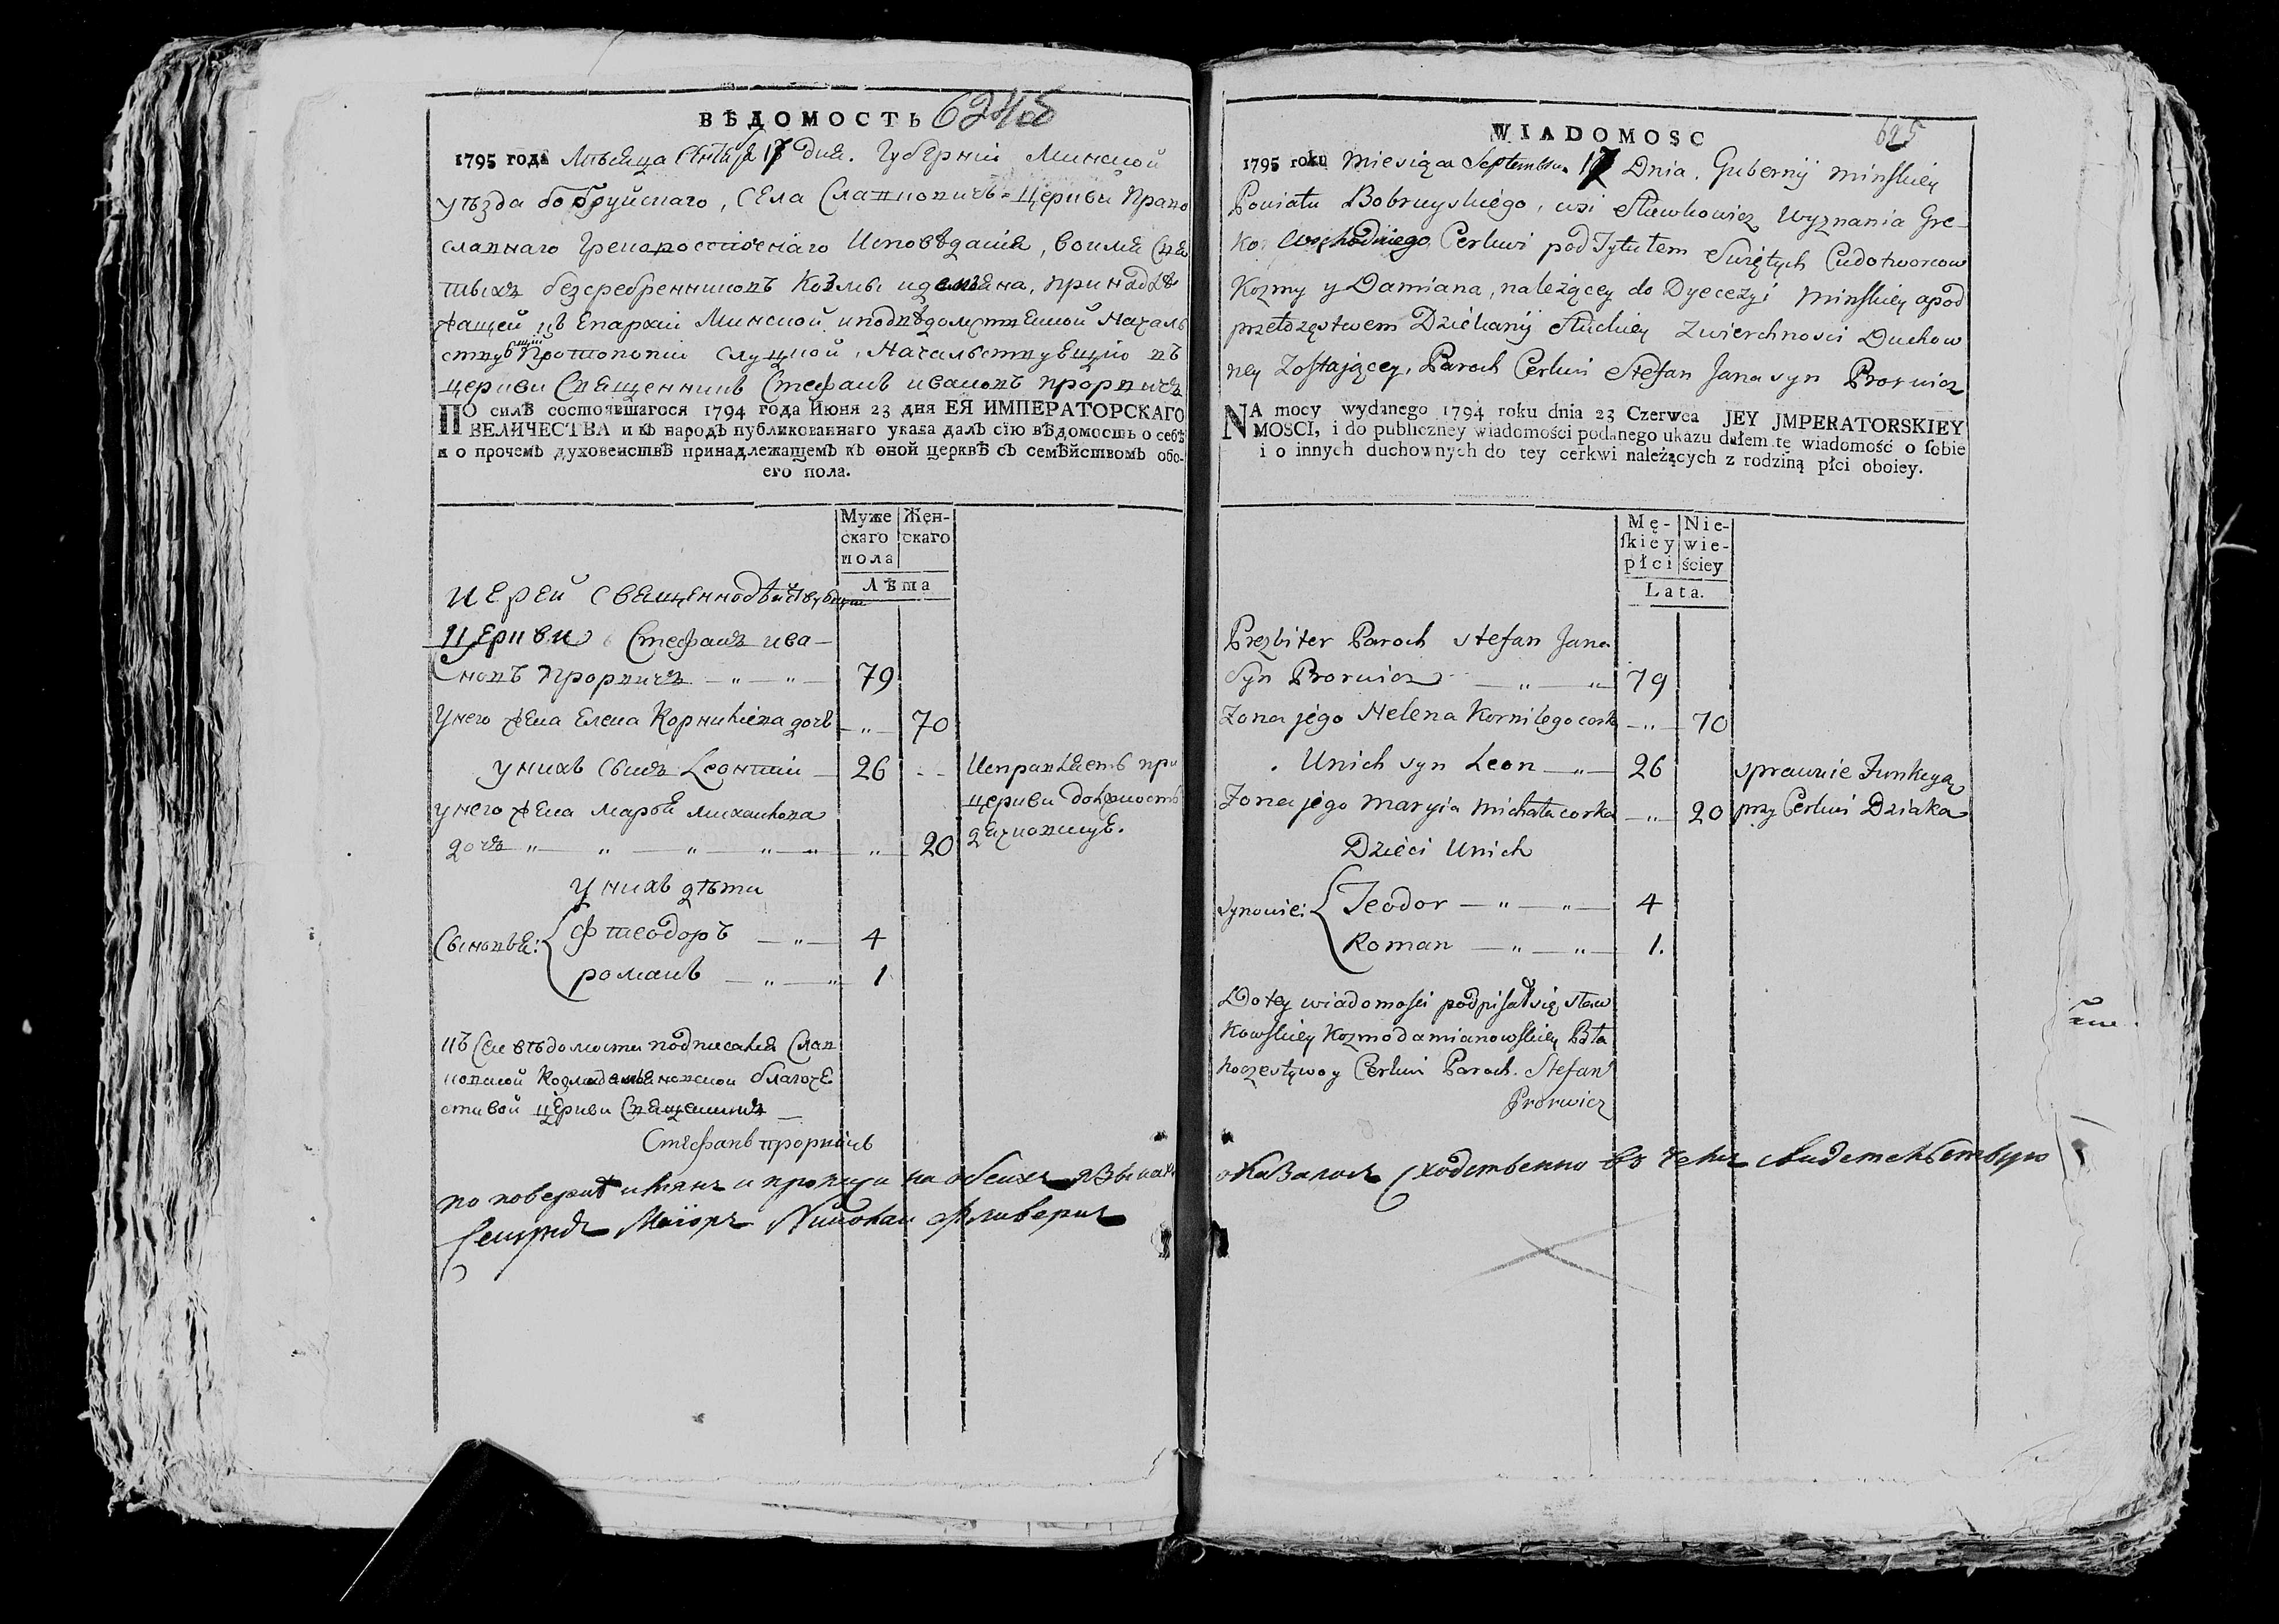 ВѢДОМОСТЬ 624
1795 года Мѣсяца Сентября 17 дня. Губерніи Минской
уѣзда бобруйскаго, села Славковичъ Церкви Право
славнаго Грекороссійскаго Исповѣданія, во имя Свя
тыхъ безсребренниковъ Козмы идеміяна, принадле
жащей къ Епархіи Минской иподвѣдомственной Началь
ству Протопопіи слуцкой, Началствующій въ
церкви Священникъ Стефанъ ивановъ прорвичъ
ПО силѣ состоявшагося 1794 года Июня 23 дня ЕЯ ИМПЕРАТОРСКАГО
ВЕЛИЧЕСТВА и въ народъ публикованнаго указа далъ сїю вѣдомость о себѣ
и о прочемъ духовенствѣ принадлежащемъ къ оной церквѣ съ семѣйствомъ обо-
его пола.
Муже скаго пола
Жен- скаго
Лѣта
иерей священнодѣйствующій
Церкви Стефанъ ива-
новъ Прорвичъ — „ — „ — 79
Унего жена Елена Корниліева дочъ — „ — 70
унихъ сынъ Леонтій — 26 Исправляетъ при
церкви должность
дячковскую.
унего жена марья михайлова
дочъ „ — „ — „ — „ — „ 20
унихъ дѣти
Сыновья: Фтеодоръ — „ — 4
романъ — „ — „ 1
къ сей вѣдомости подписался Слав
ковской Козмодемьяновской благоче
стивой церкви Священникъ —
Стефанъ прорвичъ
по поверки иких и протчи на обеихъ языкахъ
Секундъ Маіоръ Николай
WIADOMOSC 625
1795 roku Miesiąca Septembra 17 Dnia. Gubernij minskiey
Powiatu Bobruyskiego, wsi Sławkowicz Wyznania Gre-
ko Wschodniego Cerkwi pod Tytułem Swiętych Cudotworcow
Kozmy y Damiana, należącey do Dyecezyi Minskiey apod
przełozęstwem Dziekanij Słuckiey Zwierchnosci Duchow
ney Zostającey, Paroch Cerkwi Stefan Jana syn Prorwicz
NA mocy wydanego 1794 roku dnia 23 Czerwca JEY JMPERATORSKIEY
MOSCI, i do publiczney wiadomości podanego ukazu dałem tę wiadomość o sobie
i o innych duchownych do tey cerkwi należących z rodziną płci oboiey.
Mę- skiey płci
Nie- wie- ściey
Lata.
Prezbiter Paroch Stefan Jana
Syn Prorwicz — „ — „ — 79
Zona jego Helena Kornilego corka — „ — 70
Unich syn Leon — „ — 26 sprawuie Funkcyą
Zona jego Maryia Michała corka — „ — 20 przy Cerkwi Dziaka
Dzieci Unich
Synowie: Teodor — „ — „ — 4
Roman — „ — „ — 1.
Do tey wiadomosci podpisał się Sław
kowskiey Kozmodamianowskiey Bła
hoczestywoy Cerkwi Paroch. Stefan
Prorwicz
оказалось сходственно въ чемъ свидетельствую